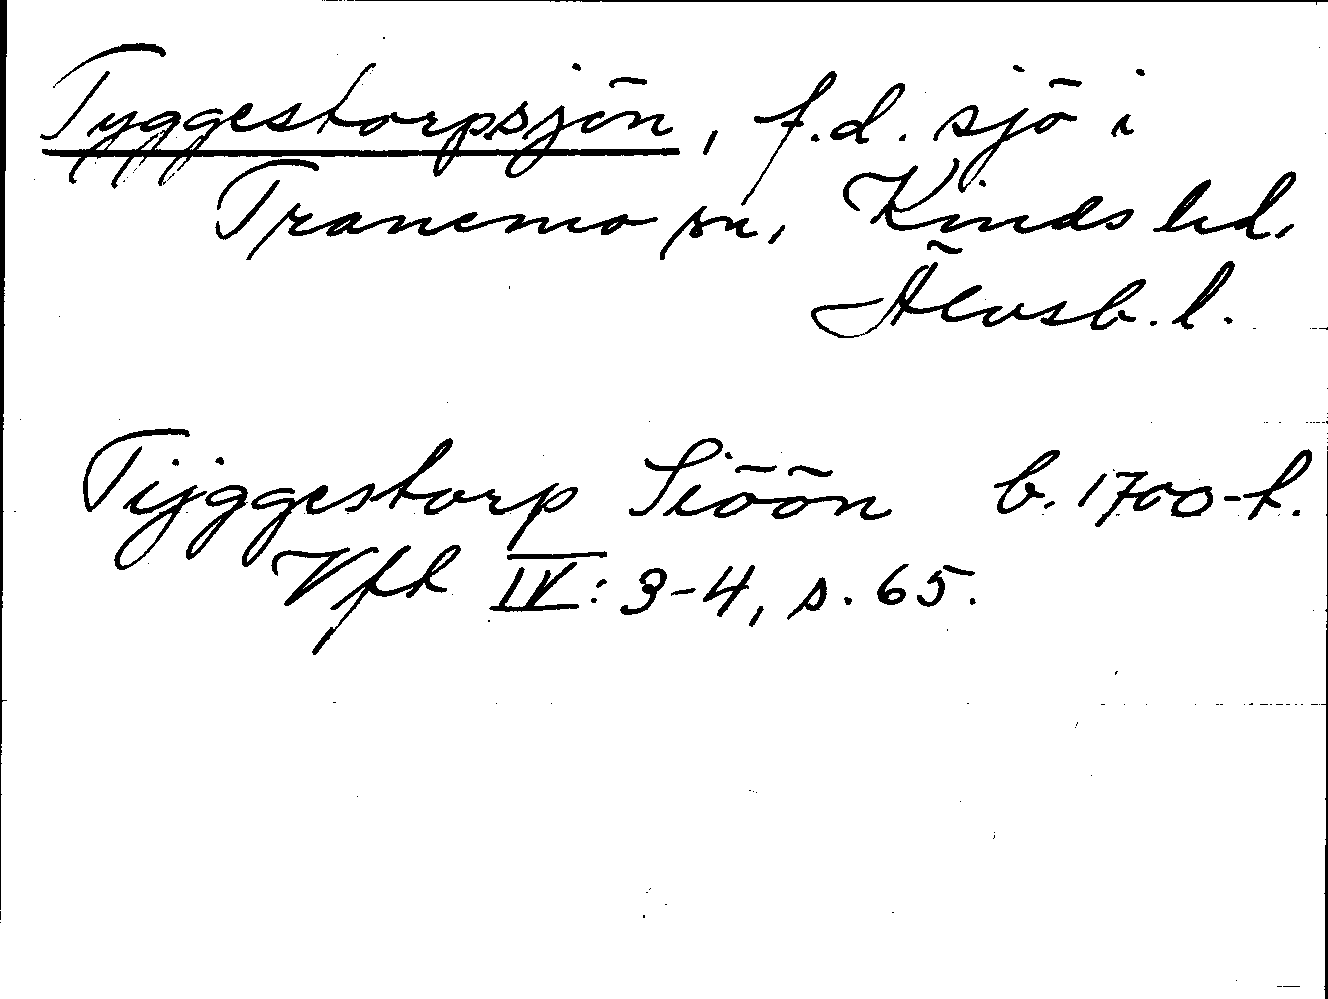 Tyggestorpsjön, f.d. sjö i
Tranemo sn, Kinds hd,
Älvsb. l.
Tijggestorp Siöön b. 1700-t.
Vfh IV: 3-4, s. 65.